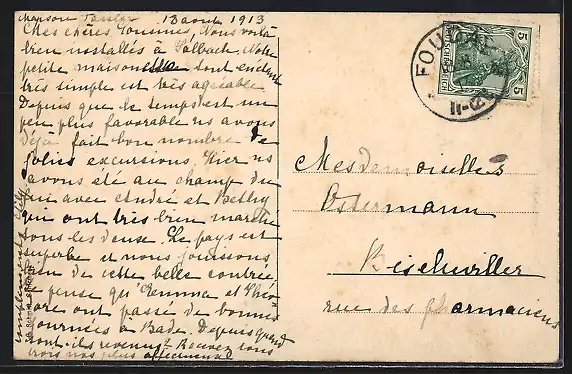 Maison Pasler 13 août 1913
Mes chères Cousines, Nous voilà
bien installés à Solbach. Notre
petite maison tout en étant
très simple est très agréable
Depuis que le temps est un
peu plus favorable ns avons
déjà fait bon nombre de
jolies excursions. Hier ns
avons été au champ du
feu avec André et Bethy
qui ont très bien marché
tous les deux. Le pays est
superbe et nous jouissons
bien de cette belle contrée,
je pense qu'Emma et Théo
dore ont passé de bonnes
journées à Bade. Depuis quand
sont-ils revenus? Recevez tous
trois nos plus affectueux
compliments
FOUDAY
DEUTSCHES REICH
5 5
Mesdemoiselles
Ostermann
Bischwiller
rue des pharmaciens